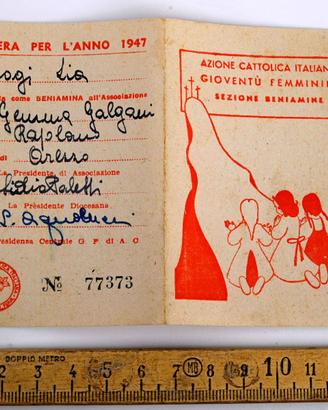 ERA PER L'ANNO 1947
Lia
come BENIAMINA all'Associazione
Gemma Galgani
di Arezzo
La Presidente di Associazione
Paletti
La Presidente Diocesana
P. Agnolucci
residenza Centrale G. F. di A. C
Nº 77373
AZIONE CATTOLICA ITALIAN
GIOVENTÙ FEMMINI
SEZIONE BENIAMINE
DOPPIO METRO
2 3 4 5 6 7 MB 8 9 10 11